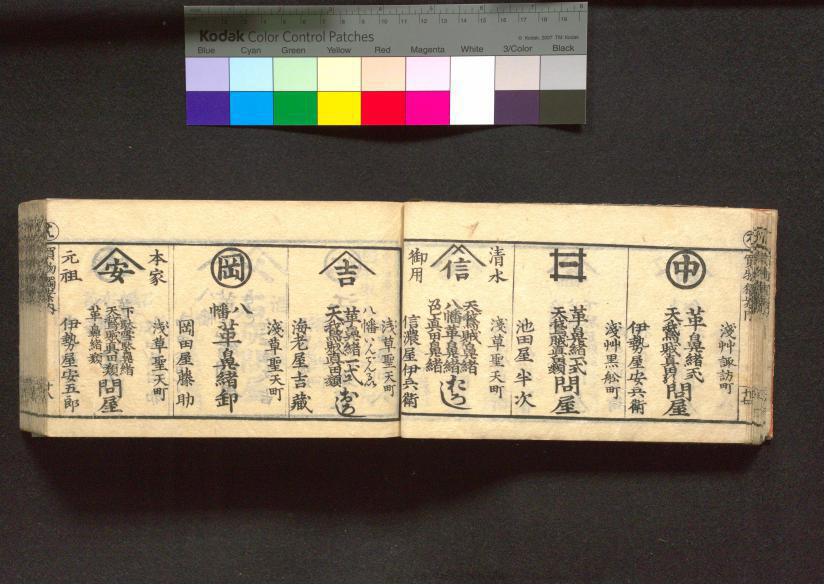 Kodak Color Control Patches
© Kodak, 2007 TM: Kodak
Blue Cyan Green Yellow Red Magenta White 3/Color Black
浅艸諏訪町
中
革鼻緒一式
問屋
伊勢屋安兵衛
浅艸黒舩町
革鼻緒一式
問屋
池田屋半次
浅草聖天町
清水
信
天鵞絨鼻緒
八幡革鼻緒
おろし
御用
信濃屋伊兵衛
浅草聖天町
吉
八幡いんでんるい
革鼻緒一式
おろし
海老屋吉蔵
浅草聖天町
岡
八幡革鼻緒卸
岡田屋藤助
浅草聖天町
本家
安
下駄雪駄鼻緒
革鼻緒類
問屋
元祖
伊勢屋安五郎